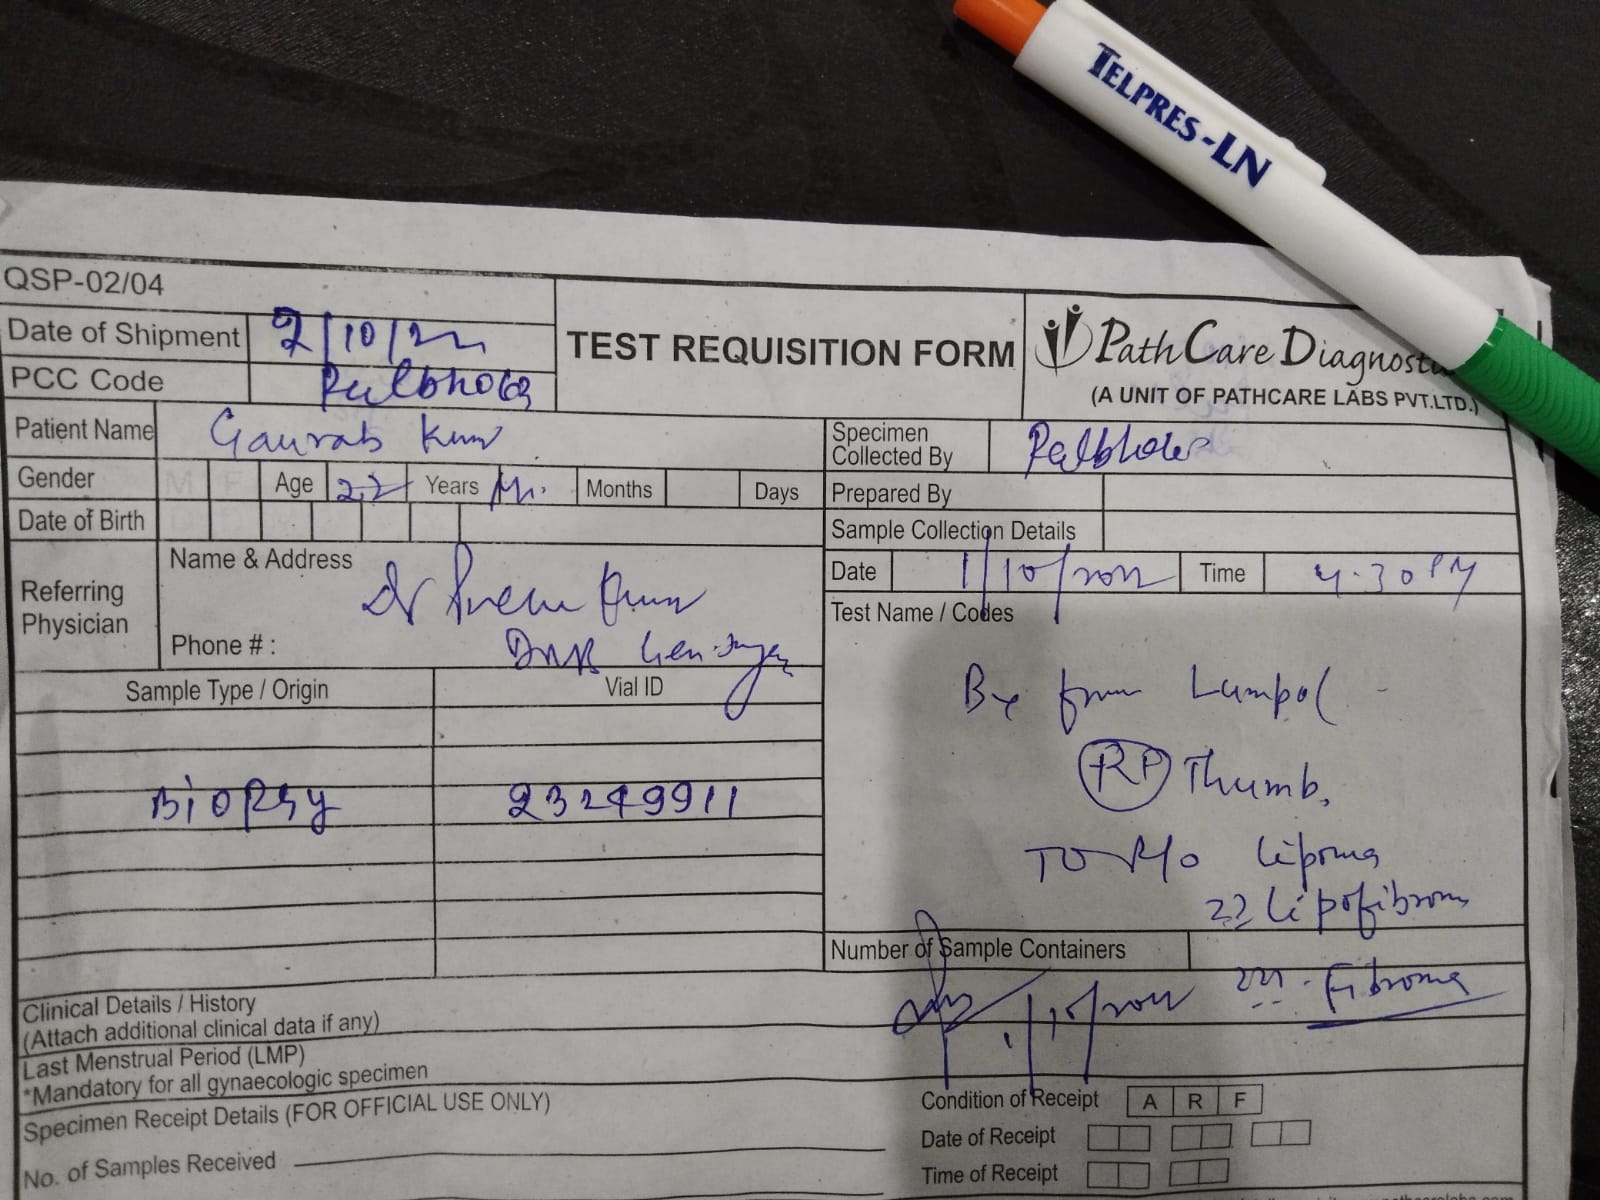 TELPRES-LN
QSP-02/04
Date of Shipment 2/10/22
PCC Code
TEST REQUISITION FORM
PathCare Diagnost
(A UNIT OF PATHCARE LABS PVT.LTD.)
Patient Name Gaurab
Gender M F Age 22 Years Months Days
Date of Birth
Specimen
Collected By
Prepared By
Sample Collection Details
Date 1/10/2022 Time 4.30 PM
Referring
Physician
Name & Address
Dr
Phone # :
DNB
Sample Type / Origin Vial ID
Biopsy 23249911
Test Name / Codes
Bx from
Thumb.
TO R/O Lipoma
?? Lipofibroma
Number of Sample Containers
Fibroma
1/10/2022
Clinical Details / History
(Attach additional clinical data if any)
Last Menstrual Period (LMP)
*Mandatory for all gynaecologic specimen
Specimen Receipt Details (FOR OFFICIAL USE ONLY)
No. of Samples Received
Condition of Receipt A R F
Date of Receipt
Time of Receipt